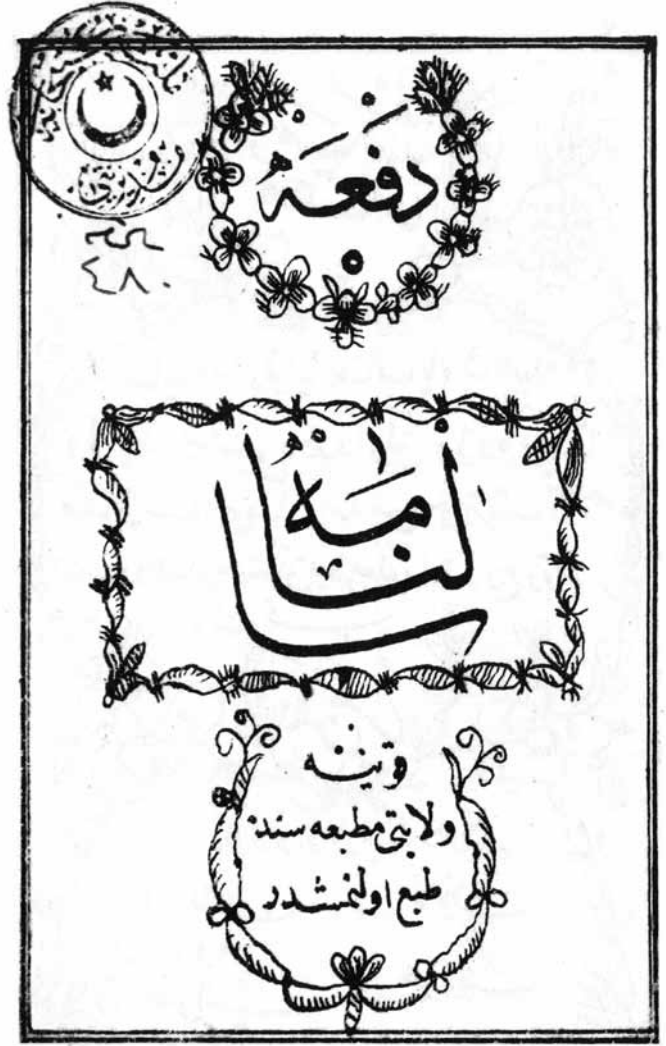 دفعه
٥
سالنامه
قونیه
ولایتی مطبعه سنده
طبع اولنمشدر